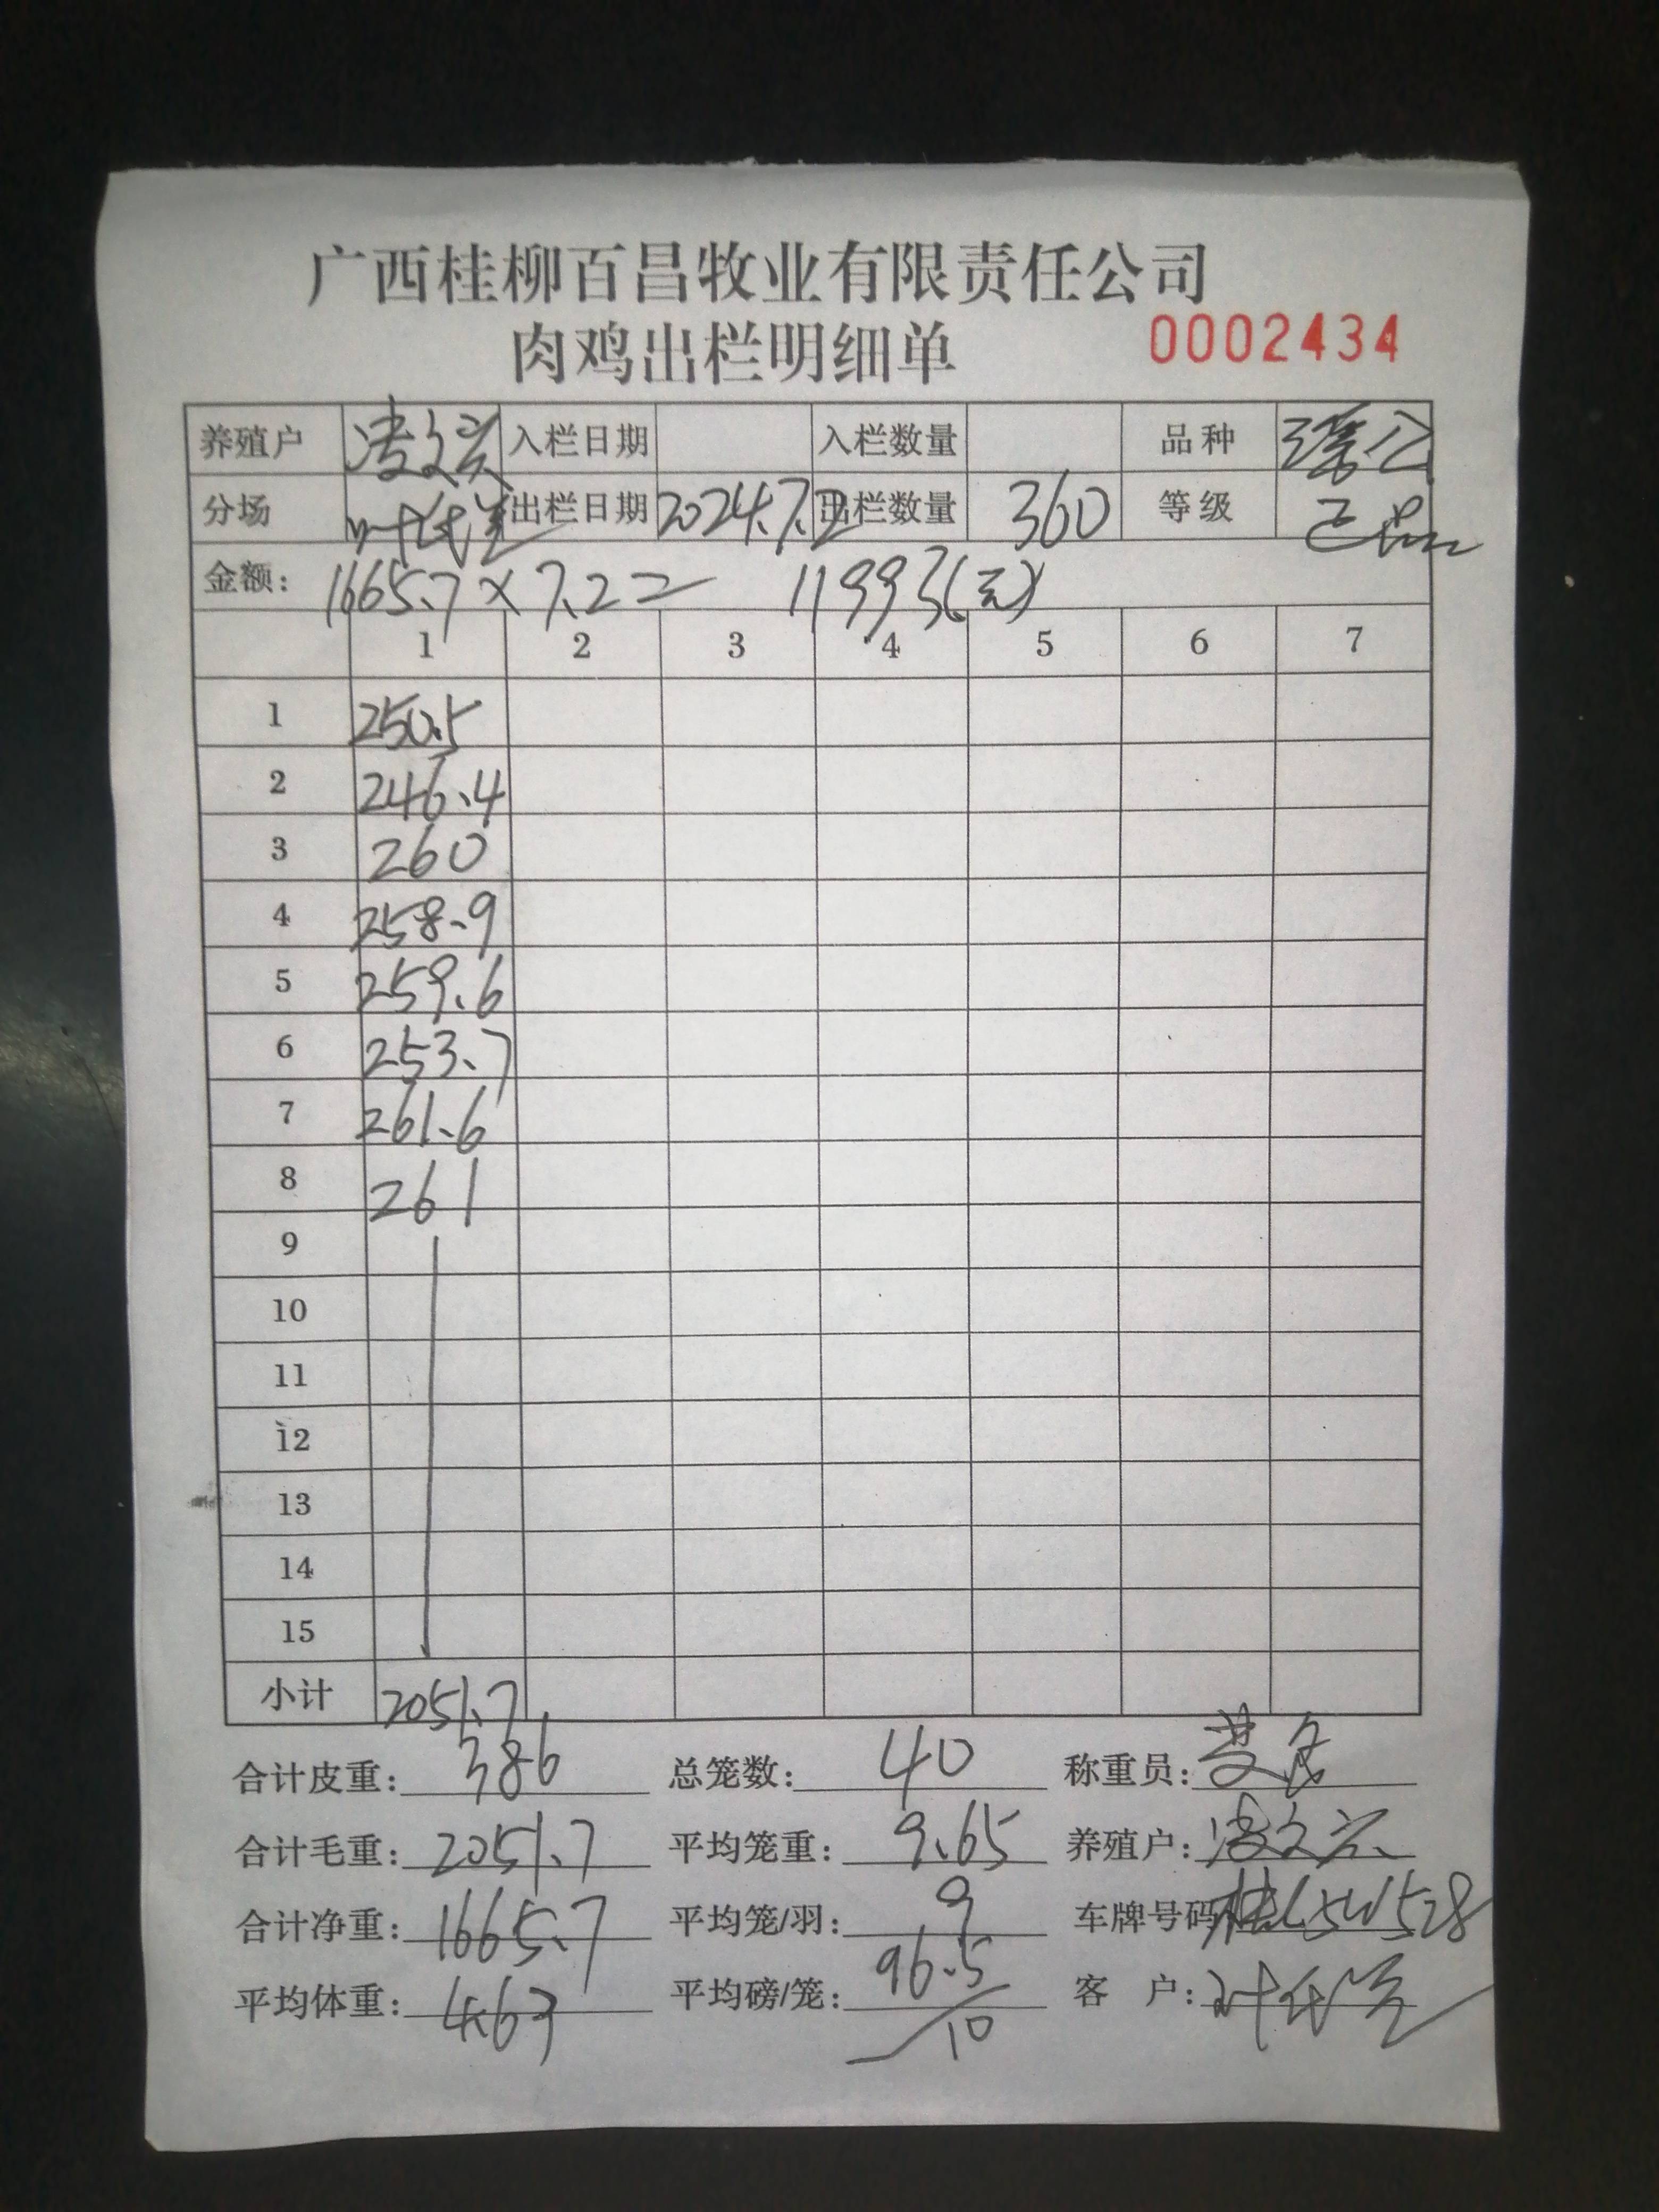 广西桂柳百昌牧业有限责任公司
肉鸡出栏明细单 0002434
养殖户 凌文兴 入栏日期 入栏数量 品种 瑶公
分场 叶任生 出栏日期 2024.7.2 出栏数量 360 等级 正品
金额: 1665.7×7.2= 11993(元)
1 2 3 4 5 6 7
1 250.5
2 246.4
3 260
4 258.9
5 259.6
6 253.7
7 261.6
8 261
9
10
11
12
13
14
15
小计 2051.7
合计皮重: 386 总笼数: 40 称重员:
合计毛重: 2051.7 平均笼重: 9.65 养殖户: 凌文兴
合计净重: 1665.7 平均笼/羽: 9 车牌号码
平均体重: 4.63 平均磅/笼: 96.5/10 客 户: